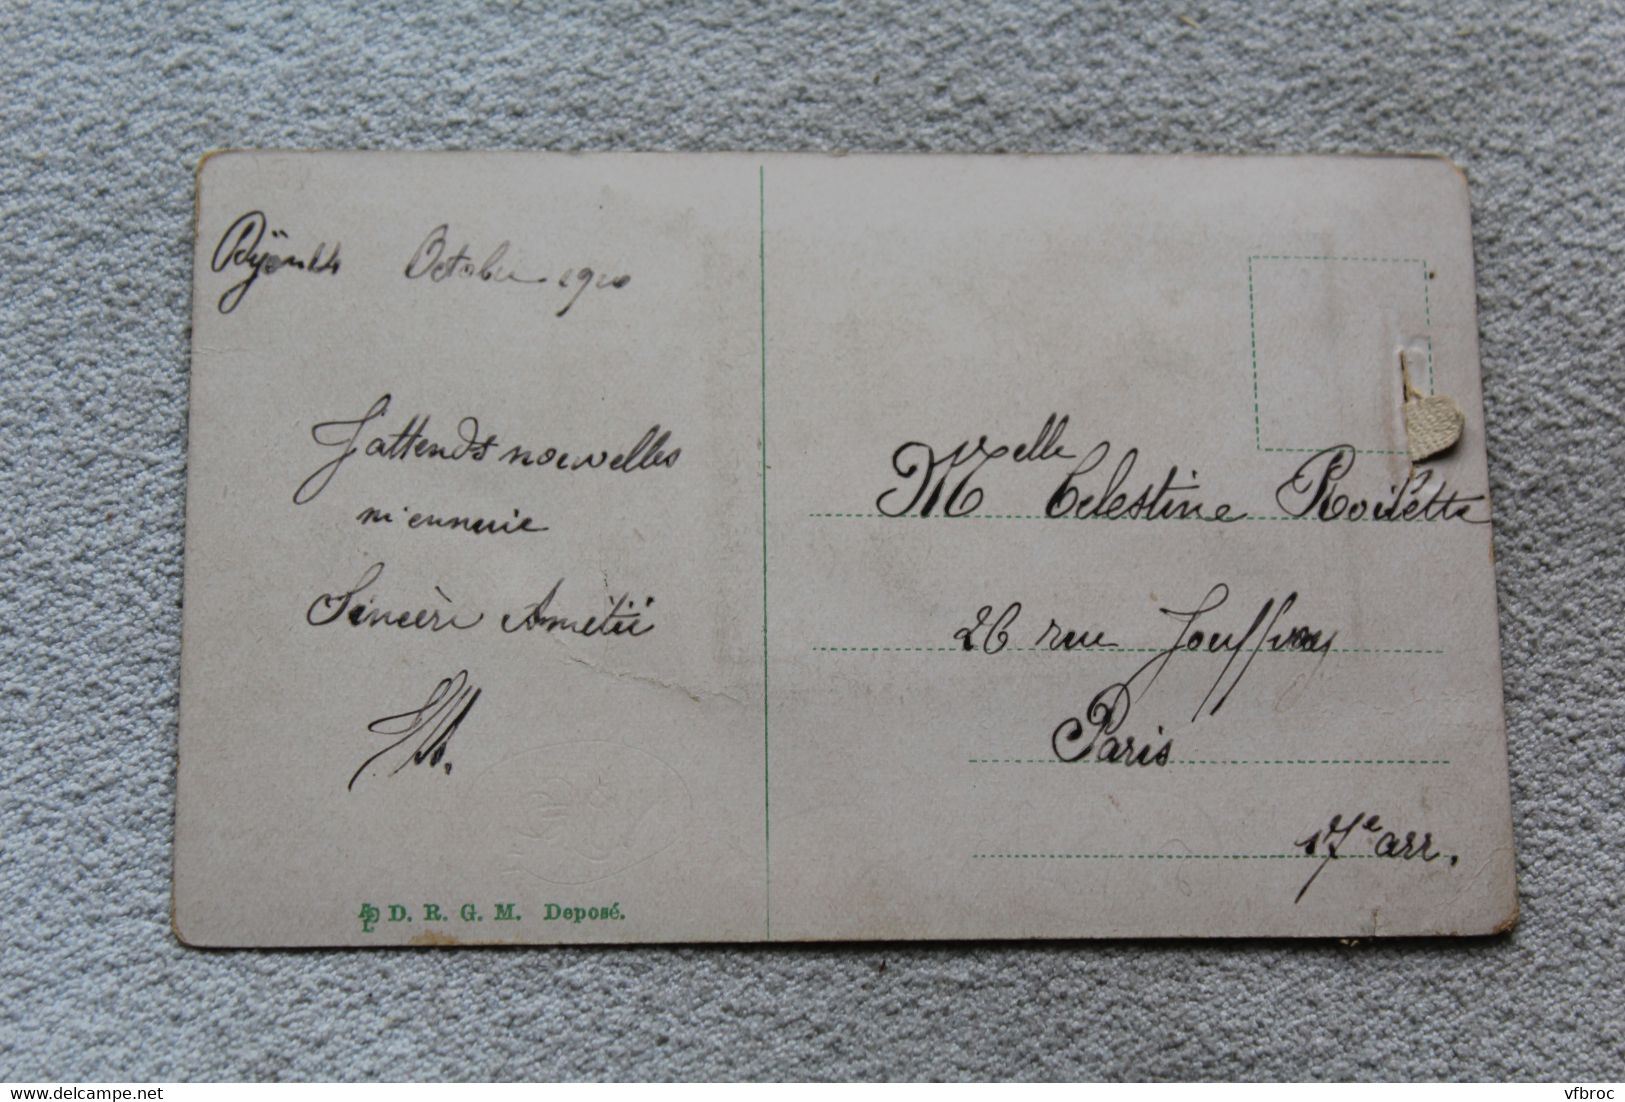 Octobre 1910
J'attends nouvelles
m'ennuie
Sincère Amitié
D. R. G. M. Deposé.
Melle Celestine
26 rue Jouffroy
Paris
17e arr.
www.delcampe.net
vfbroc